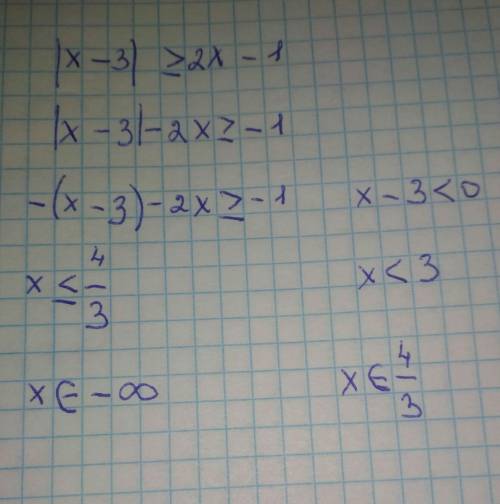 |x - 3| ≥ 2x - 1
|x - 3| - 2x ≥ - 1
-(x - 3) - 2x ≥ - 1 x - 3 < 0
x ≤ 4/3 x < 3
x ∈ - ∞ x ∈ 4/3